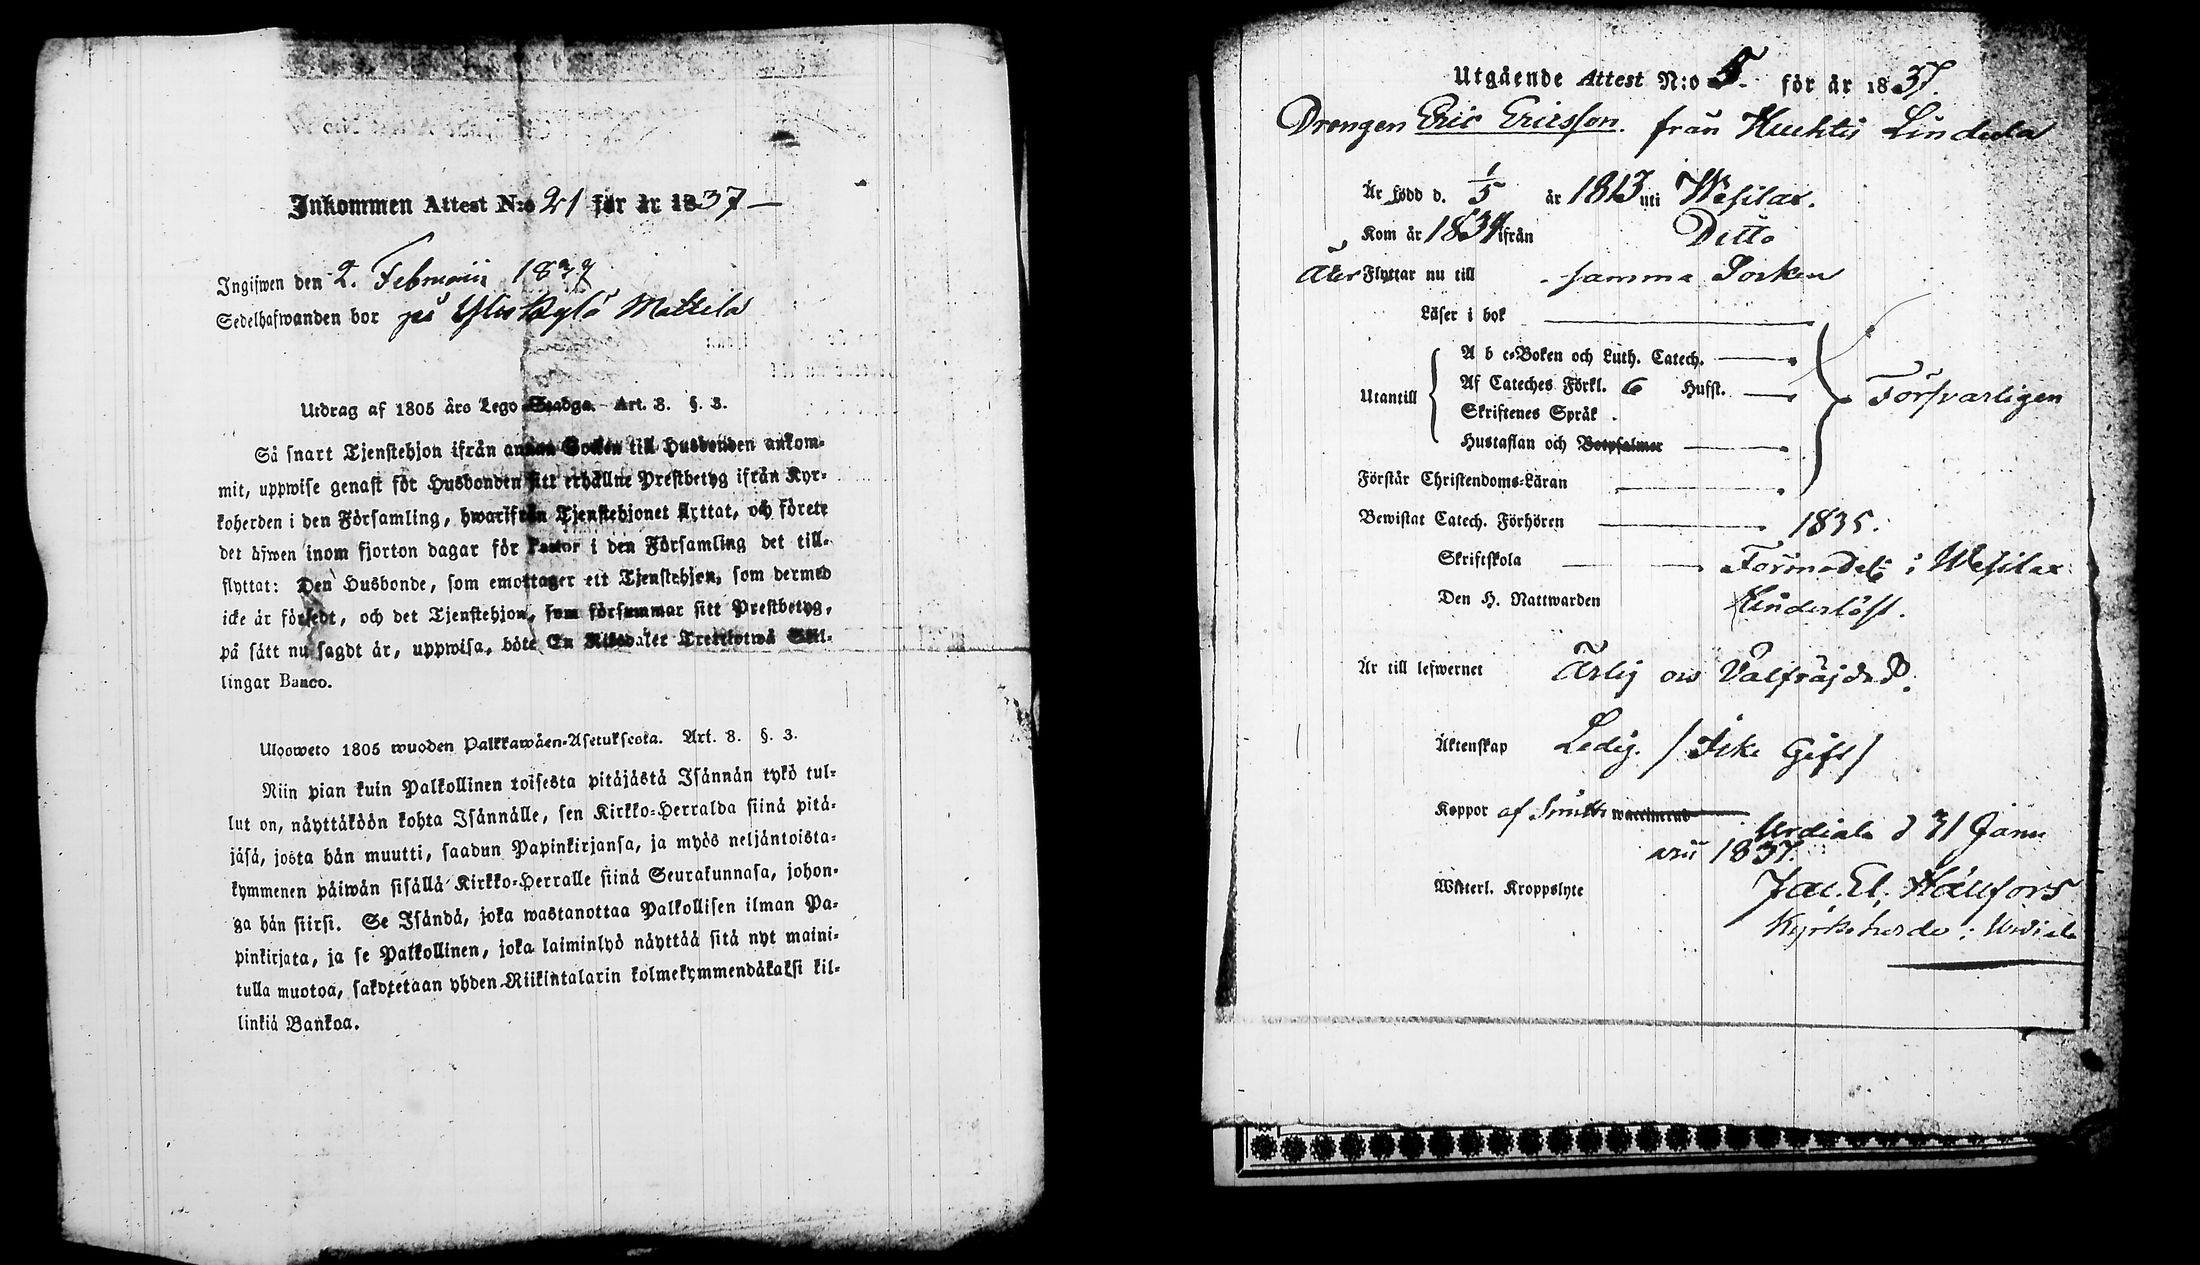 Inkommen Attest N:o 21 för år 1837 —
Ingifwen den 2. Februarii 1837
Sedelhafwanden bor på Yliskylä Mattila
Utdrag af 1805 års Lego-Stadga. Art. 8. §. 3.
Så snart Tjenstehjon ifrån annan Socken till Husbonden ankom-
mit, uppwise genast för Husbonden sitt erhållne Prestbetyg ifrån Kyr-
koherden i den Församling, hwarifrån Tjenstehjonet flyttat, och förete
det äfwen inom fjorton dagar för Pastor i den Församling det till-
flyttat: Den Husbonde, som emottager ett Tjenstehjon, som dermed
icke är försedt, och det Tjenstehjon, som försummar sitt Prestbetyg,
på sätt nu sagdt är, uppwisa, böte En Riksdaler Trettiotwå Skil-
lingar Banco.
Ulosweto 1805 wuoden Palkkawäen-Asetuksesta. Art. 8. §. 3.
Niin pian kuin Palkollinen toisesta pitäjästä Isännän tykö tul-
lut on, näyttäköön kohta Isännälle, sen Kirkko-Herralda siinä pitä-
jäsä, josta hän muutti, saadun Papinkirjansa, ja myös neljäntoista-
kymmenen päiwän sisällä Kirkko-Herralle siinä Seurakunnasa, johon-
ga hän siirsi. Se Isändä, joka wastanottaa Palkollisen ilman Pa-
pinkirjata, ja se Palkollinen, joka laiminlyö näyttää sitä nyt maini-
tulla muotoa, sakotetaan yhden Riikintalarin kolmekymmendäkaksi kil-
linkiä Bankoa.
Utgående Attest N:o 5. för år 1837.
Drengen Eric Ericsson. från Huhtis Lindula
Är född d. 1/5 år 1813 uti Wesilax.
Kom år 1834 ifrån Ditto
Åter Flyttar nu till samma Socken
Läser i bok
A b c-Boken och Luth. Catech.
Utantill Af Cateches Förkl. 6 Hufst. Försvarligen
Skriftenes Språk
Hustaflan och Botpsalmer
Förstår Christendoms-Läran
Bewistat Catech. Förhören 1835.
Skriftskola Förmodel. i Wesilax
Den H. Nattwarden Hinderlöst.
Är till lefwernet Ärlig och Välfräjdad.
Äktenskap Ledig. / Icke Gift /
Koppor af Smitta waccinerad
Urdiala d 31 Janu
arii 1837.
Witterl. Kroppslyte Jac. El. Hällfors
Kyrkoherde i Urdiala